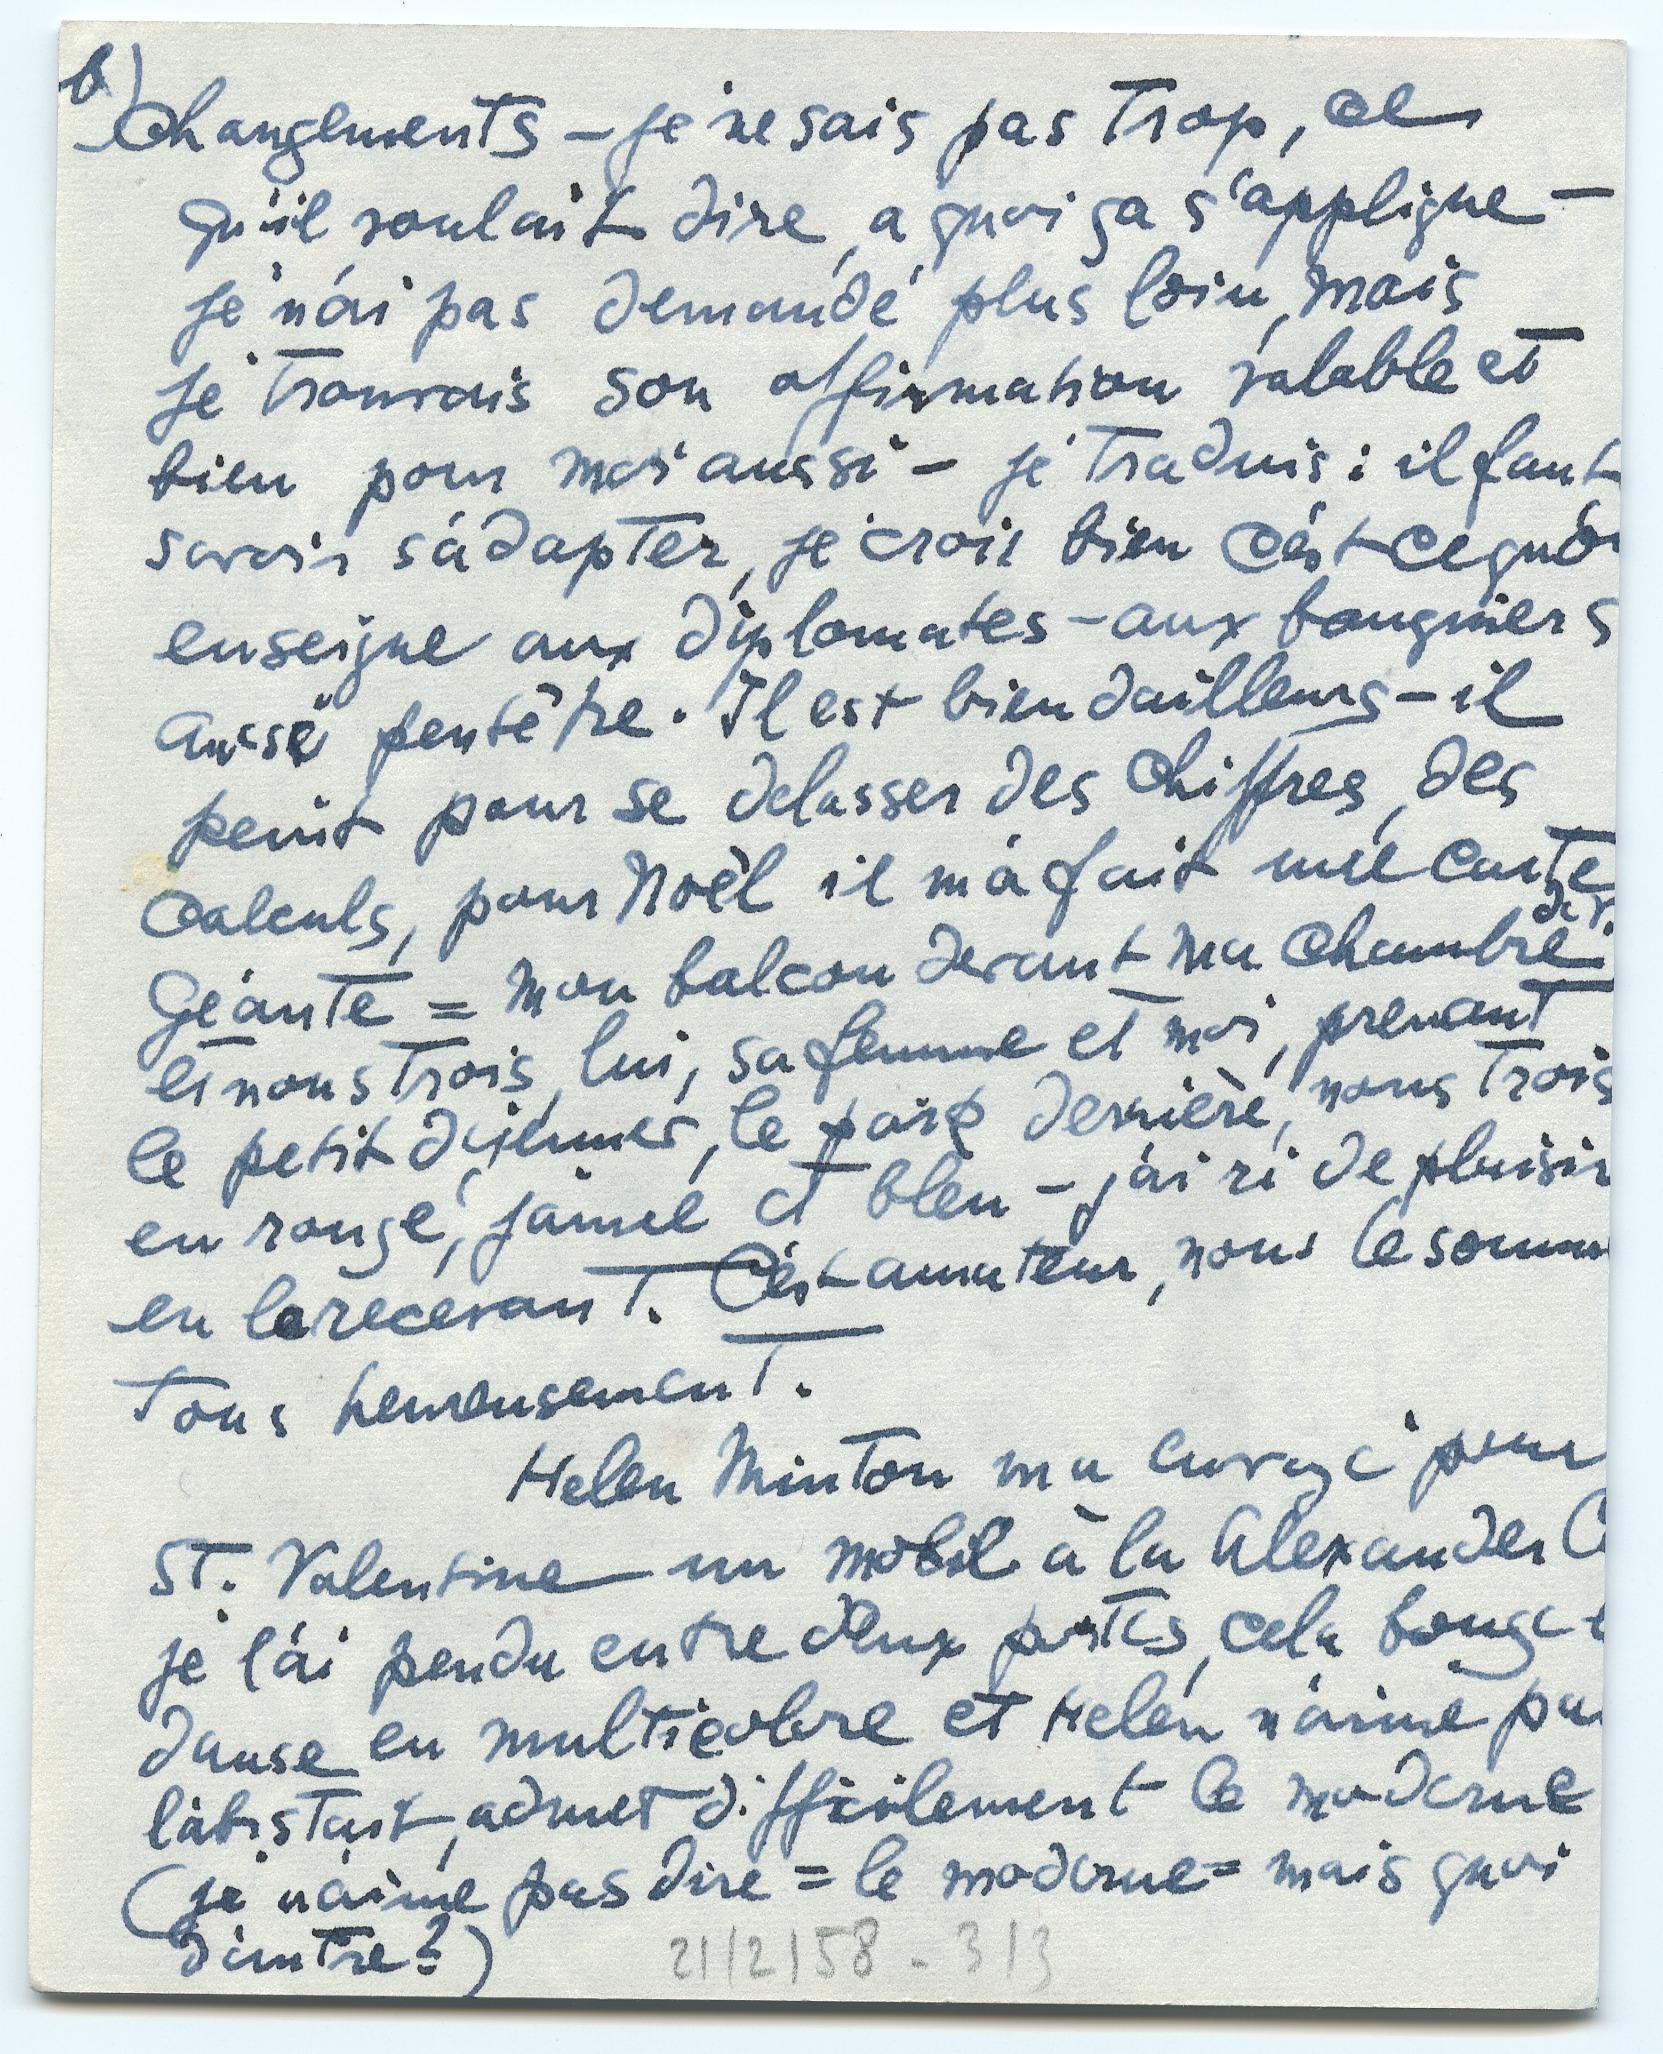 b)
Changements – je ne sais pas trop, ce
qu'il voulait dire, a quoi ça s'applique –
je n'ai pas demandé plus loin, mais
je trouvais son affirmation valable et
bien pour moi aussi – je traduis : il faut
savoir s'adapter, je crois bien c'est ce qu'on
enseigne aux diplomates – aux banquiers
aussi peutêtre. Il est bien dailleurs – il
peint pour se delasser des chiffres, des
calculs, pour Noël il m'a fait une carte
Géante = mon balcon devant ma chambre
et nous trois, lui, sa femme et moi, prenant
le petit dejeuner, le parc dernière, nous trois
en rouge, jaune et bleu – j'ai ri de plaisir
en la recevant. C'est amateur, nous le somm
tous heureusement.
Helen Minton m'a envoyé pour
ST. Valentine un mobil à la Alexander C
je l'ai pendu entre deux portes, cela bouge e
danse en multicolore et Helen n'aime pa
l'abstait, admet difficilement le moderne
(je n'aime pas dire = le moderne = mais quoi
d'autre?)
21/2/58 - 3/3